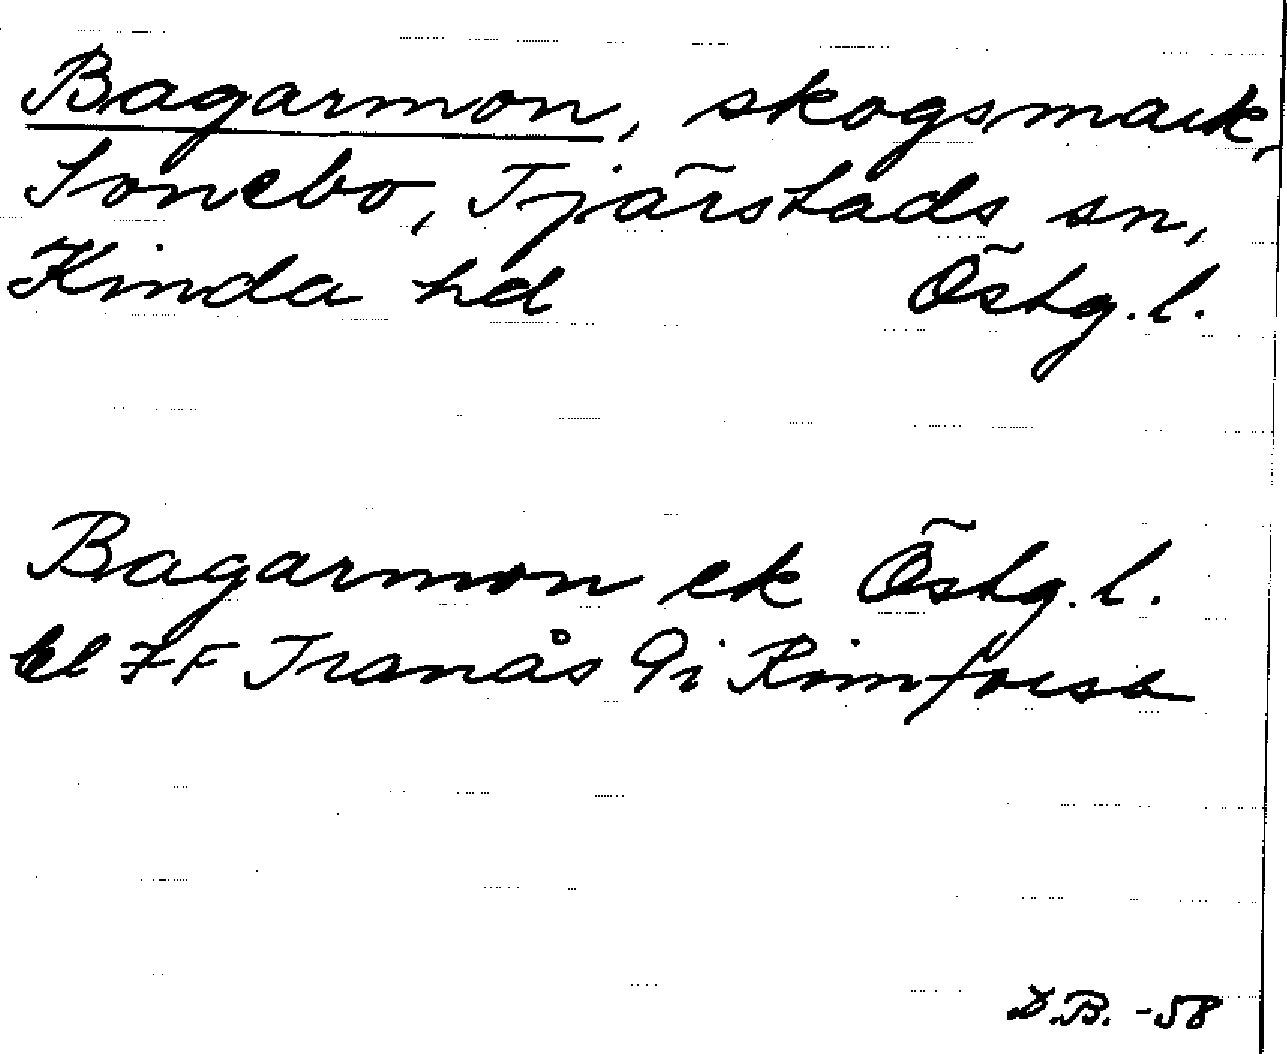 Bagarmon, skogsmark,
Sonebo, Tjärstads sn,
Kinda hd Östg. l.
Bagarmon ek Östg. l.
bl 7F Tranås 9i Rimforsa
D.B. -58